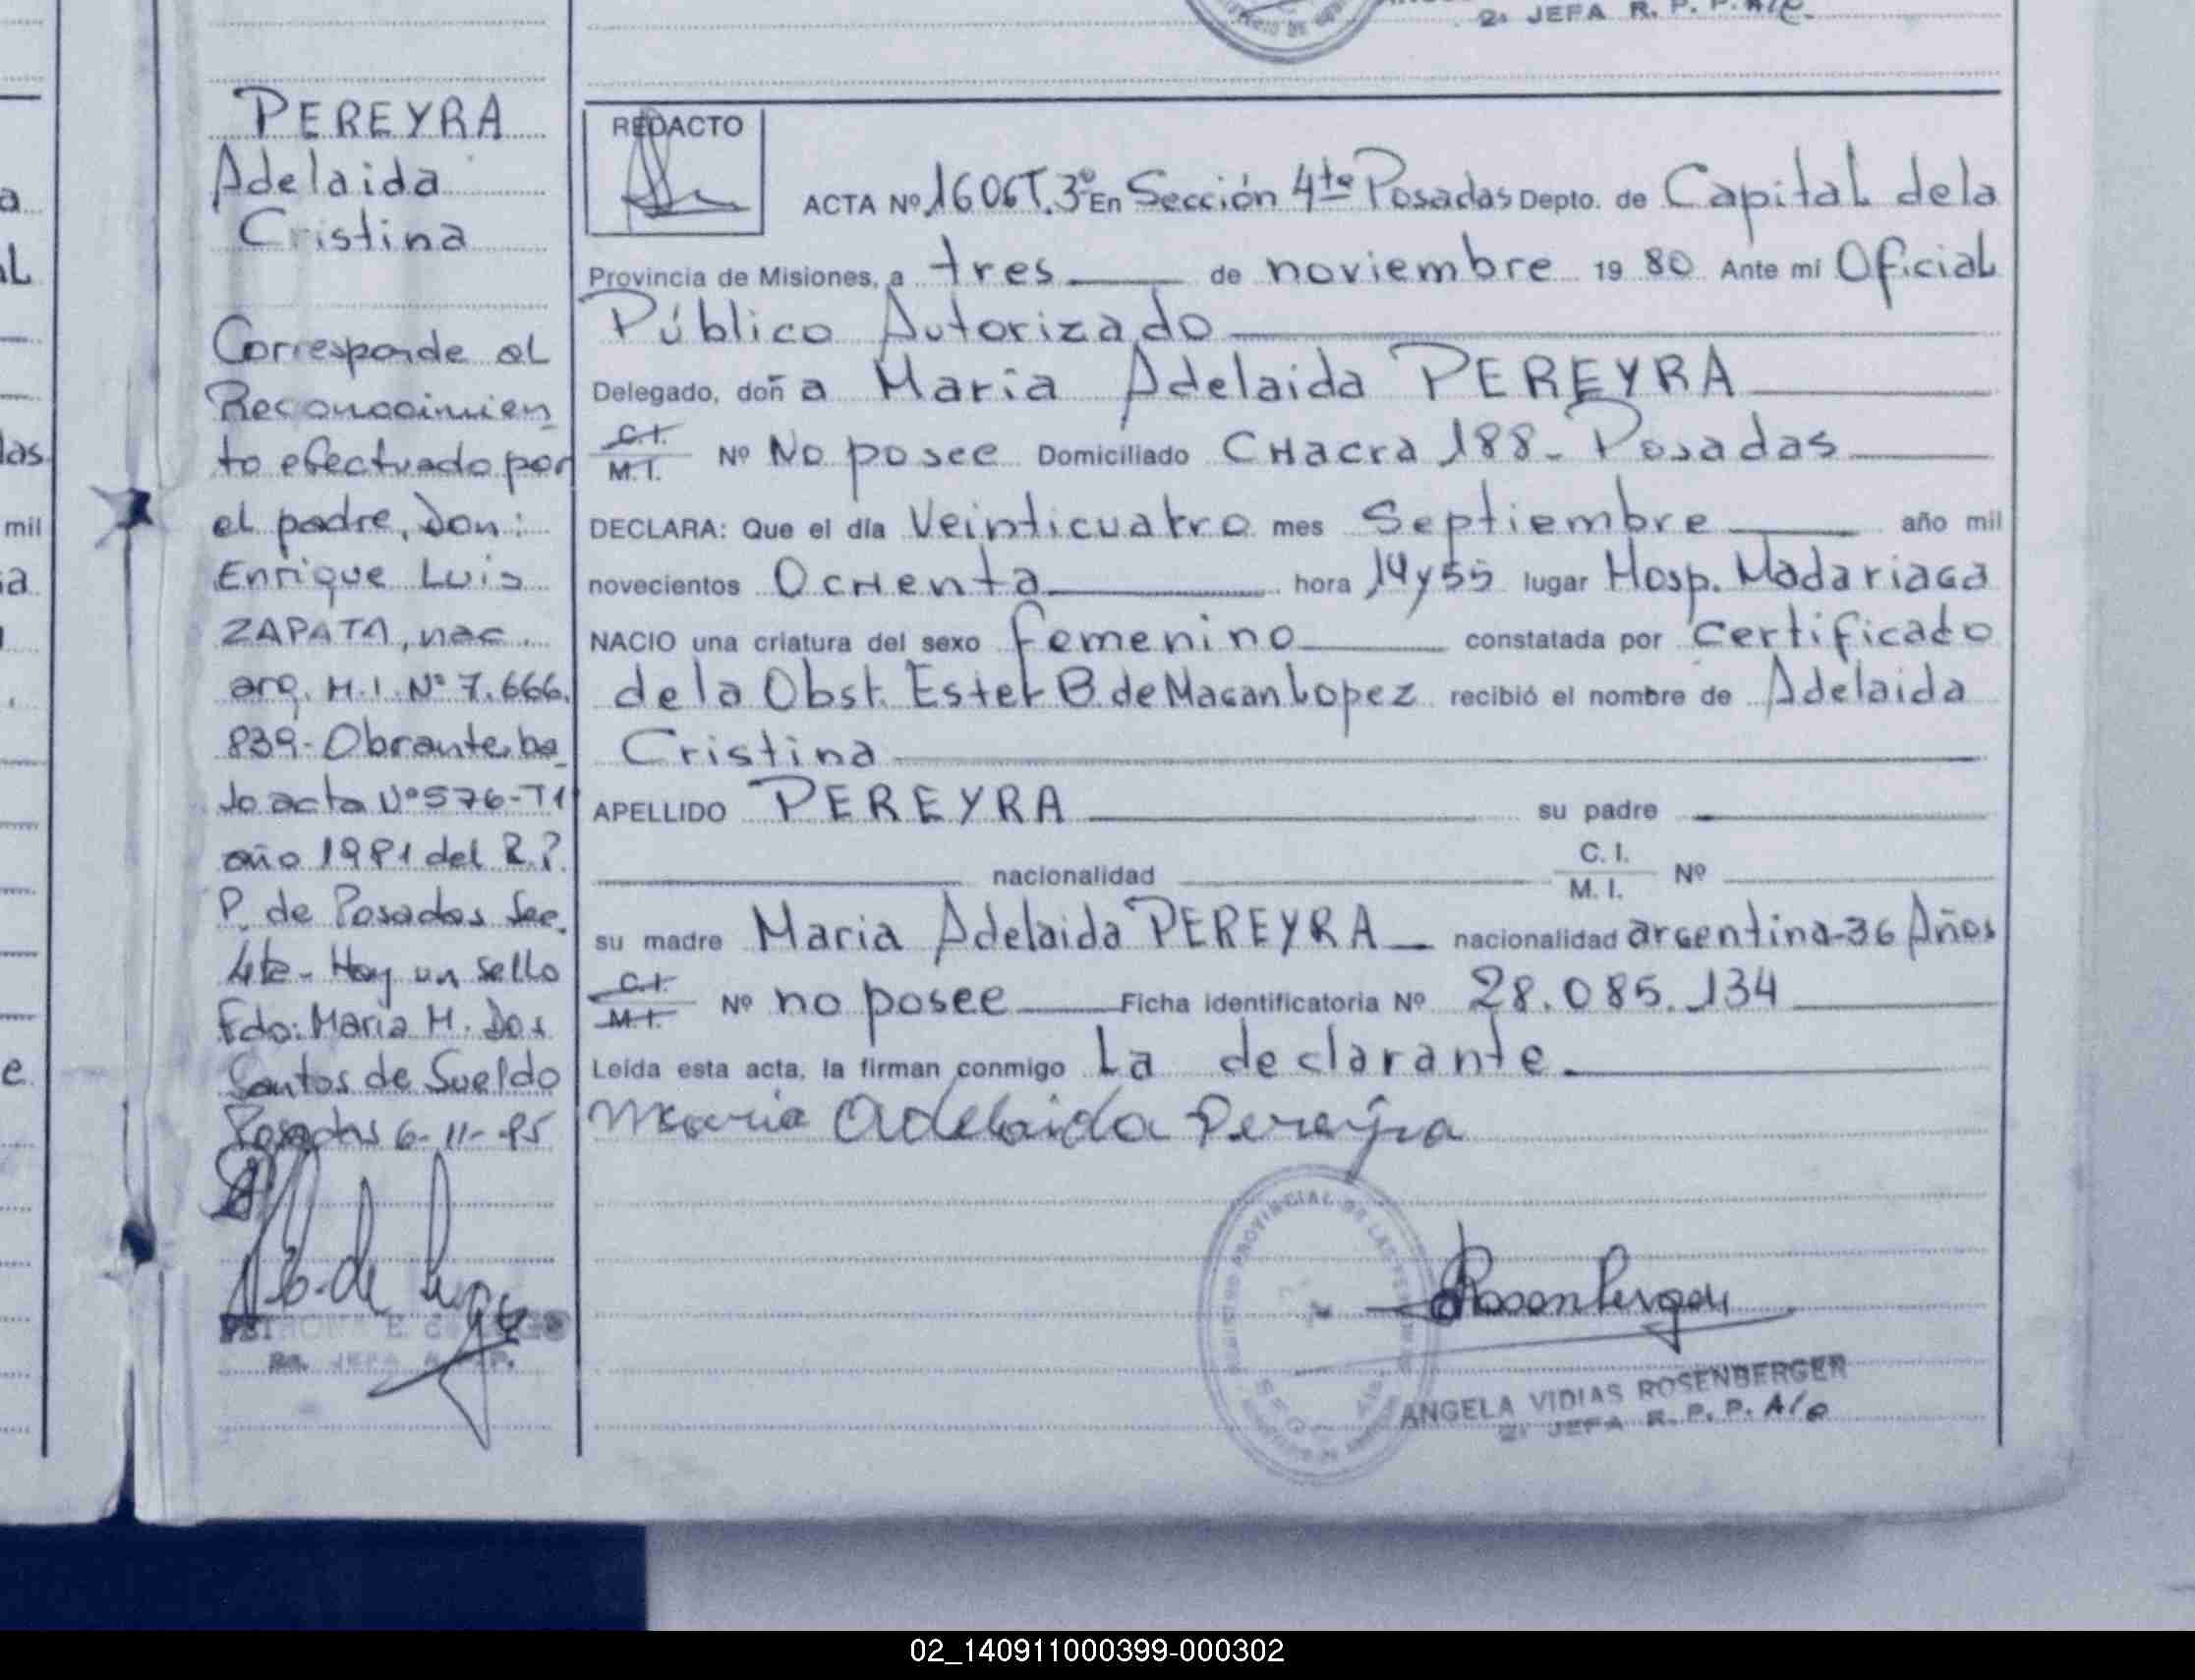 2a JEFA R. P. P. A/c.
PEREYRA
Adelaida
Cristina
Corresponde al
Reconocimien
to efectuado por
el padre, Don:
Enrique Luis
ZAPATA, nac.
arg. M.I. Nº 7.666.
839- Obrante ba
jo acta Nº 576-T1
año 1981 del R.P.
P. de Posadas Sec.
4ta- Hay un sello
Fdo: Maria M. Dos
Santos de Sueldo
Posadas 6-11-85
2a. JEFA R.P.P.
REDACTO
ACTA Nº 1606 T.3º En Sección 4ta Posadas Depto. de Capital dela
Provincia de Misiones, a tres de noviembre 19 80 Ante mí Oficial
Público Autorizado
Delegado, doña Maria Adelaida PEREYRA
C.I.
M.I. Nº No posee Domiciliado CHacra 188- Posadas
DECLARA: Que el día Veinticuatro mes Septiembre año mil
novecientos OcHenta hora 14 y 55 lugar Hosp. Madariaga
NACIO una criatura del sexo femenino constatada por certificado
de la Obst. Ester B. de recibió el nombre de Adelaida
Cristina
APELLIDO PEREYRA su padre
nacionalidad C. I.
M. I. Nº
su madre Maria Adelaida PEREYRA nacionalidad argentina-36 Años
C.I.
M.I. Nº no posee Ficha identificatoria Nº 28.085.134
Leída esta acta, la firman conmigo La declarante
Maria Adelaida Pereyra
Rosenberger
ANGELA VIDIAS ROSENBERGER
2a JEFA R. P. P. A/c
mil
02_140911000399-000302